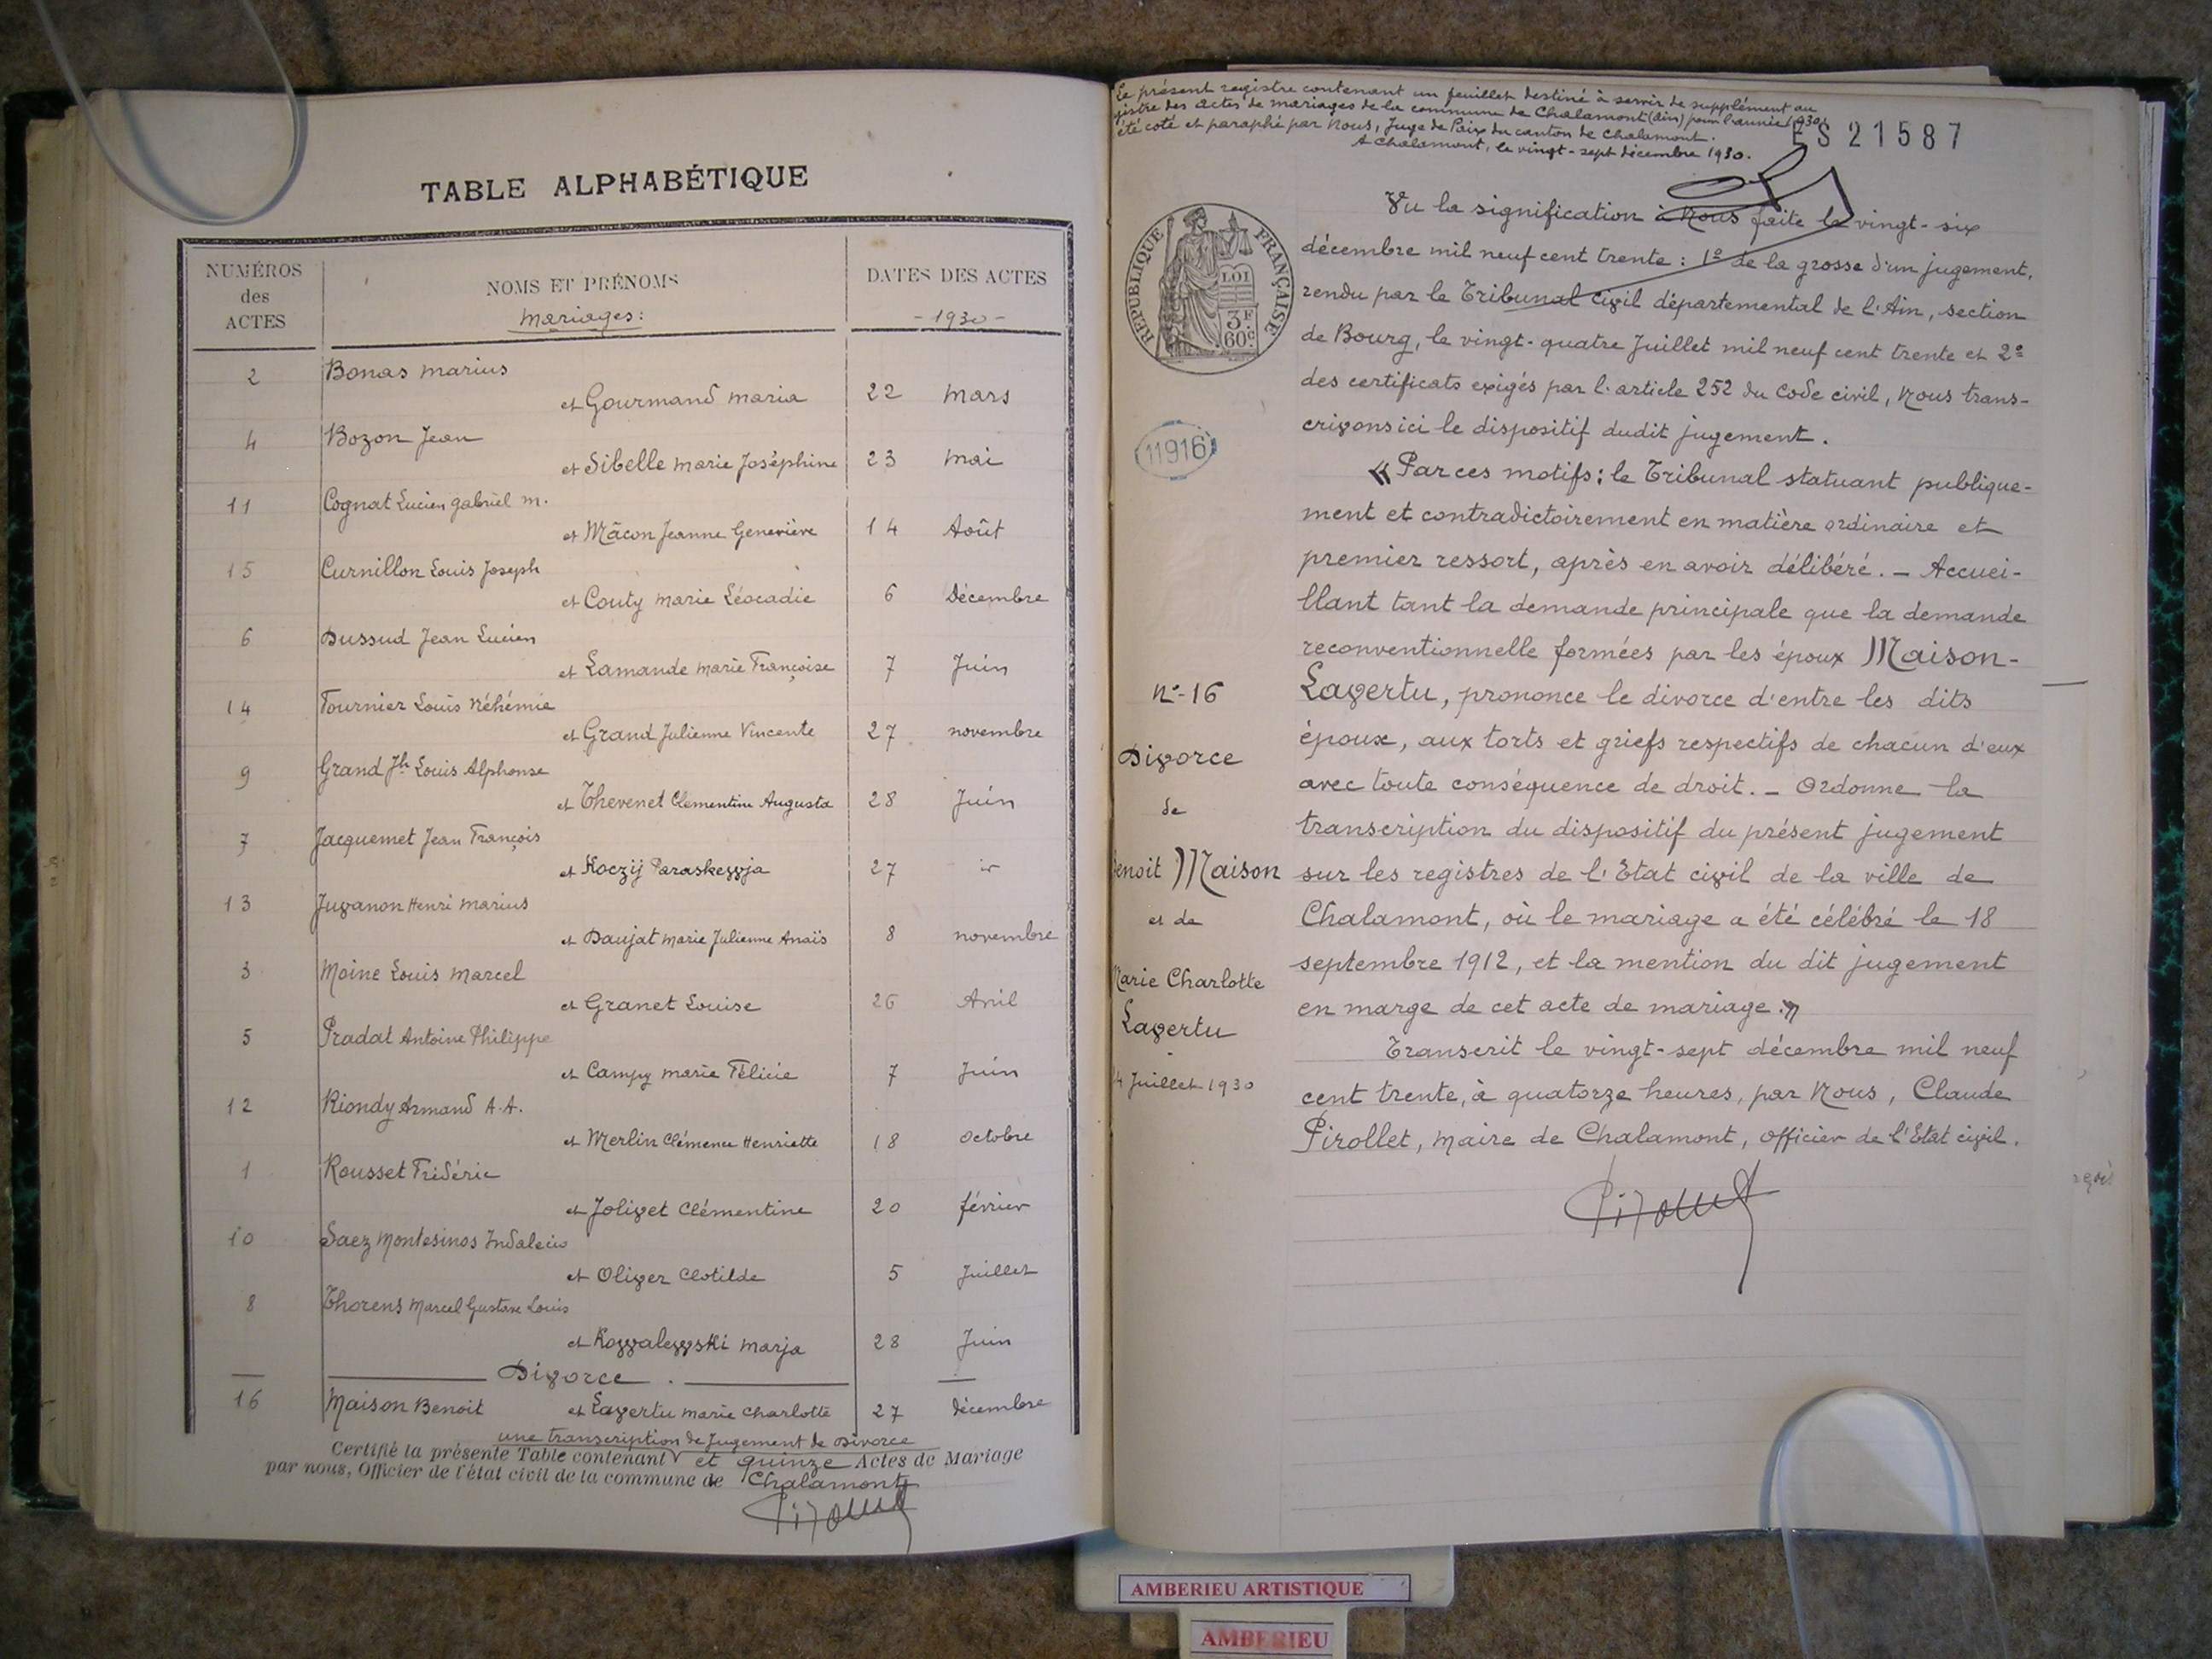 TABLE ALPHABÉTIQUE
NUMÉROS des ACTES
NOMS ET PRÉNOMS
Mariages:
DATES DES ACTES
- 1930 -
2 Bonas Marius
et Gourmand Maria 22 Mars
4 Bozon Jean
et Sibelle Marie Joséphine 23 Mai
11 Cognat Lucien Gabriel M.
et Mâcon Jeanne Geneviève 14 Août
15 Curnillon Louis Joseph
et Couty Marie Léocadie 6 Décembre
6 Dussud Jean Lucien
et Lamande Marie Françoise 7 Juin
14 Fournier Louis Néhémie
et Grand Julienne Vincente 27 novembre
9 Grand Jh Louis Alphonse
et Thevenet Clémentine Augusta 28 Juin
7 Jacquemet Jean François
et Koczij Paraskewja 27
13 Juvanon Henri Marius
et Daujat Marie Julienne Anaïs 8 novembre
3 Moine Louis Marcel
et Granet Louise 26 Avril
5 Pradat Antoine Philippe
et Campy Marie Félicie 7 Juin
12 Riondy Armand A.A.
et Merlin Clémence Henriette 18 octobre
1 Rousset Frédéric
et Jolivet Clémentine 20 février
10 Saez Montesinos Indalecio
et Oliver Clotilde 5 Juillet
8 Thorens Marcel Gustave Louis
et Kowalewski Marja 28 Juin
Divorce.
16 Maison Benoit et Lavertu Marie Charlotte 27 Décembre
une transcription de Jugement de Divorce
Certifié la présente Table contenant et quinze Actes de Mariage
par nous, Officier de l'état civil de la commune de Chalamont
Le présent registre contenant un feuillet destiné à servir de supplément au
gistre des actes de mariages de la commune de Chalamont (Ain) pour l'année 1930,
été coté et paraphé par Nous, Juge de Paix du canton de Chalamont.
A Chalamont, le vingt-sept décembre 1930.
ES 21587
RÉPUBLIQUE FRANÇAISE
LOI
3F
60c
11916
Vu la signification à Nous faite le vingt-six
décembre mil neuf cent trente : 1º de la grosse d'un jugement,
rendu par le Tribunal civil départemental de l'Ain, section
de Bourg, le vingt-quatre Juillet mil neuf cent trente et 2º
des certificats exigés par l'article 252 du Code civil, Nous trans-
crivons ici le dispositif dudit jugement.
"Par ces motifs: le Tribunal statuant publique-
ment et contradictoirement en matière ordinaire et
premier ressort, après en avoir délibéré. – Accuei-
llant tant la demande principale que la demande
reconventionnelle formées par les époux Maison-
Lavertu, prononce le divorce d'entre les dits
époux, aux torts et griefs respectifs de chacun d'eux
avec toute conséquence de droit. – Ordonne la
transcription du dispositif du présent jugement
sur les registres de l'Etat civil de la ville de
Chalamont, où le mariage a été célébré le 18
septembre 1912, et la mention du dit jugement
en marge de cet acte de mariage."
Transcrit le vingt-sept décembre mil neuf
cent trente, à quatorze heures, par Nous, Claude
Pirollet, Maire de Chalamont, officier de l'Etat civil.
Nº-16
Divorce
de
enoit Maison
et de
Marie Charlotte
Lavertu
4 Juillet 1930
AMBERIEU ARTISTIQUE
AMBERIEU